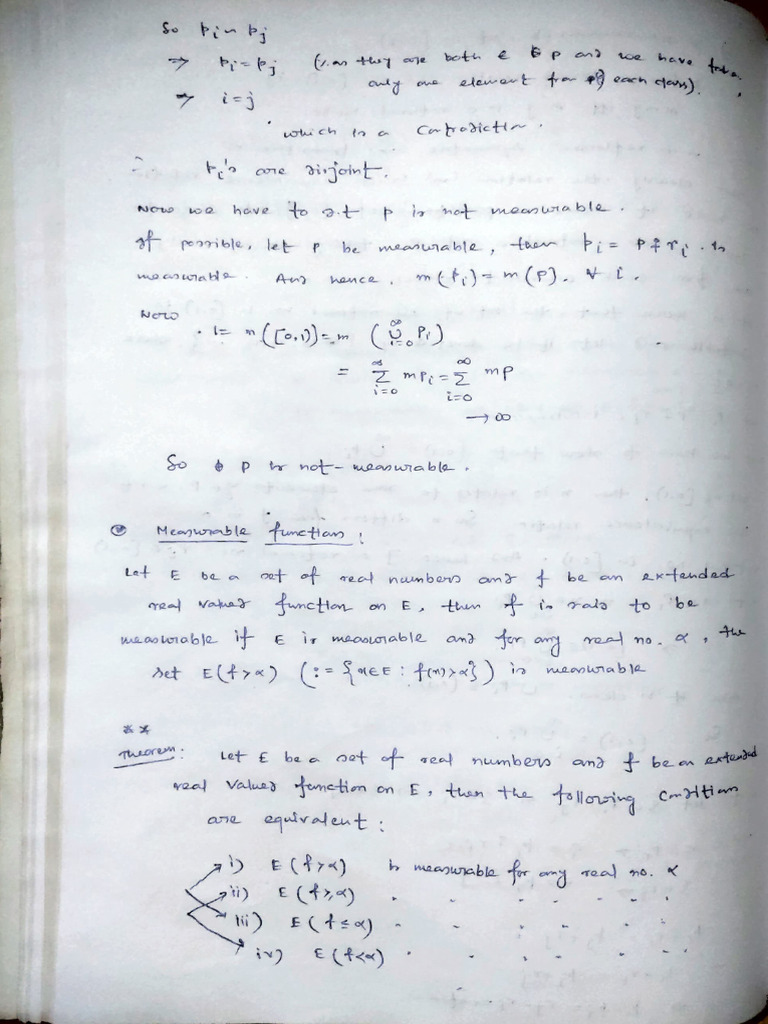 So Pi ~ Pj
⇒ Pi = Pj (∵ as they are both ∈ P and we have taken
only one element from each class).
⇒ i = j
which is a contradiction.
∴ Pi's are disjoint.
Now we have to s.t P is not measurable.
If possible, let P be measurable, then Pi = P ∔ ri is
measurable. And hence, m(Pi) = m(P). ∀ i.
Now
1 = m([0,1)) = m (∪_{i=0}^{∞} Pi)
= ∑_{i=0}^{∞} mPi = ∑_{i=0}^{∞} mP
→ ∞
So P is not-measurable.
Measurable functions:
Let E be a set of real numbers and f be an extended
real valued function on E, then f is said to be
measurable if E is measurable and for any real no. α, the
set E(f>α) (:= {x∈E : f(x)>α}) is measurable
**
Theorem: Let E be a set of real numbers and f be an extended
real valued function on E, then the following condition
are equivalent:
i) E(f>α) is measurable for any real no. α
ii) E(f≥α) " " " " " "
iii) E(f≤α) " " " " " "
iv) E(f<α) " " " " " "